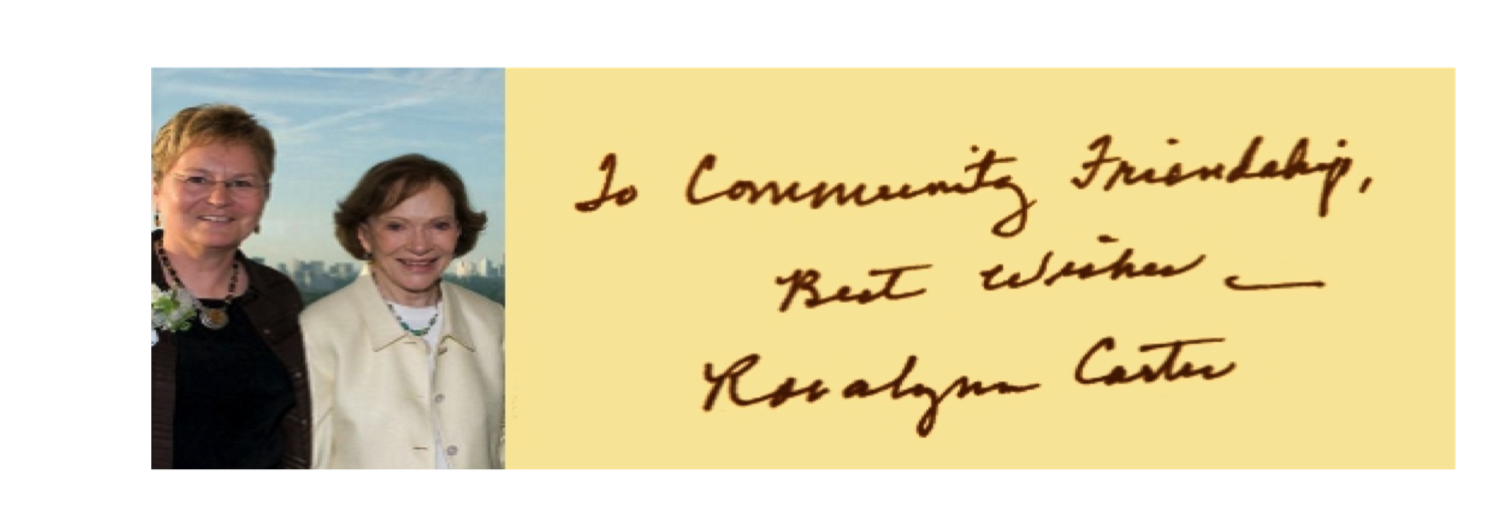 To Community Friendship,
Best Wishes —
Rosalynn Carter